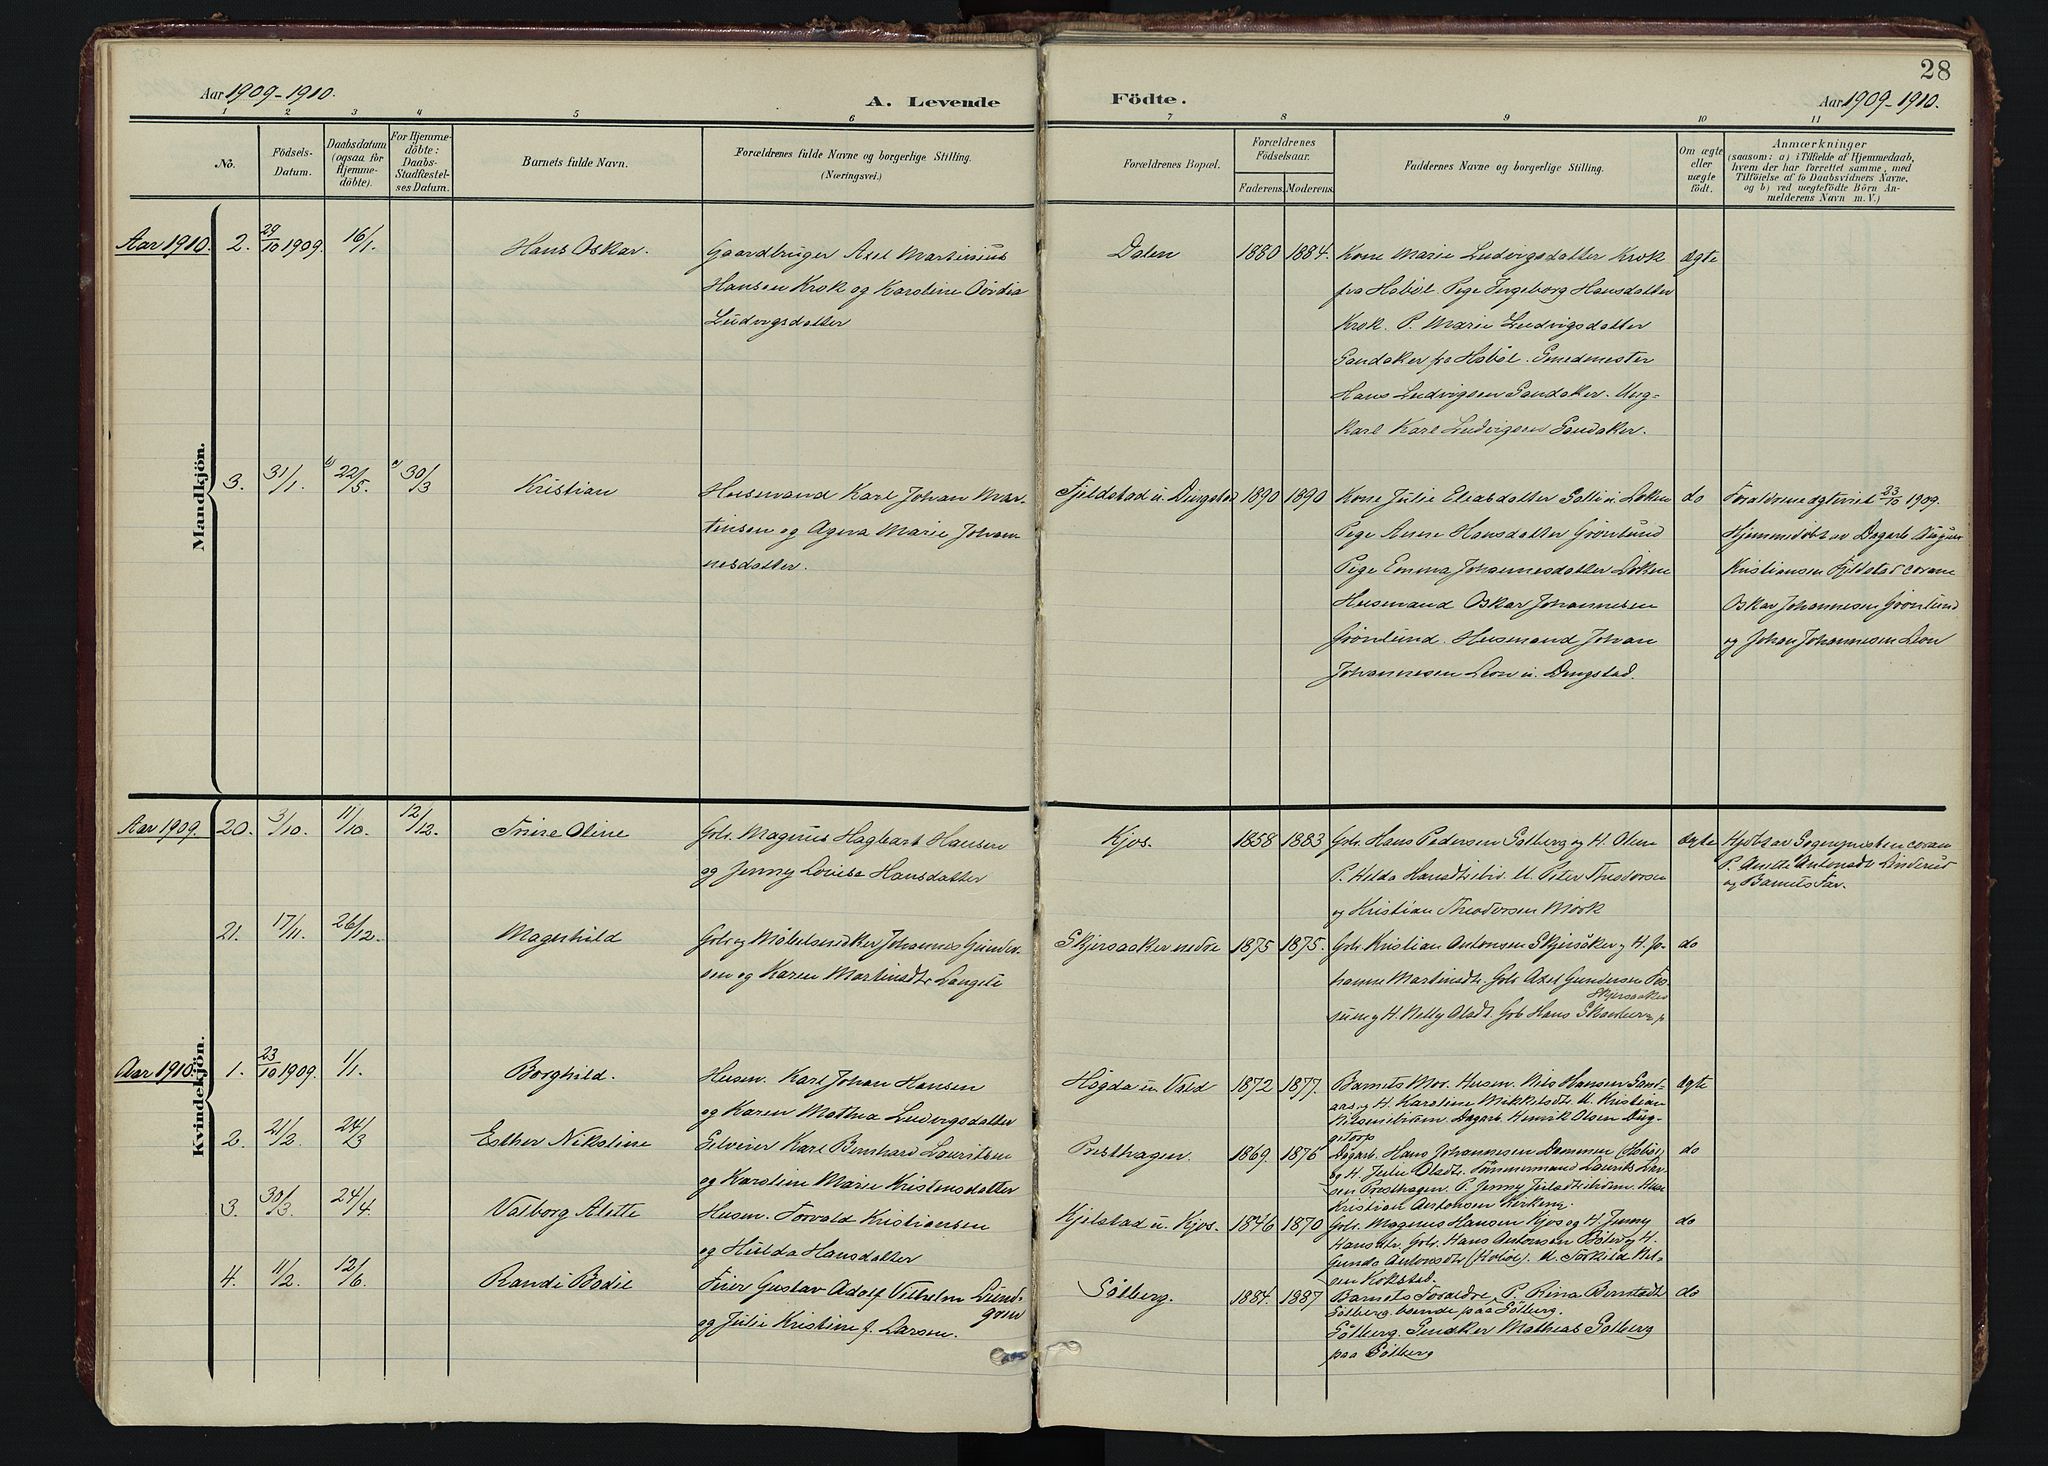 28
Aar 1909-1910.
A. Levende Födte.
Aar 1909-1910.
1 2 3 4 5 6 7 8 9 10 11
No.
Födsels-Datum.
Daabsdatum (ogsaa for Hjemme-döbte).
For Hjemme-döbte: Daabs-Stadfæstel-ses Datum.
Barnets fulde Navn.
Forældrenes fulde Navne og borgerlige Stilling. (Næringsvei.)
Forældrenes Bopæl.
Forældrenes Födselsaar.
Faderens. Moderens.
Faddernes Navne og borgerlige Stilling.
Om ægte eller uægte födt.
Anmærkninger
(saasom: a) i Tilfælde af Hjemmedaab,
hvem der har forrettet samme, med
Tilföielse af to Daabsvidners Navne.
og b) ved uegtefödte Börn An-
melderens Navn m. V.)
Mandkjön.
Aar 1910. 2. 29/10 1909. 16/1. Hans Oskar.
Gaardbruger Axel Martinius
Hansen Krok og Karoline
Ludvigsdatter
Dalen 1880 1884.
Kone Marie Ludvigsdatter Krok
fra Haböl. Pige Ingeborg Hansdatter
Krok. P. Marie Ludvigsdatter
Sandaker fra Haböl. Smedmester
Hans Ludvigsen Sandaker. Ung-
karl Karl Ludvigsen Sandaker.
ægte
3. 31/1. b) 22/5. a) 30/3 Kristian
Husmand Karl Johan Mar-
tinsen og Agna Marie Johan-
nesdatter.
Fjeldstad u. Dengstad 1890 1890
Kone Julie Eleasdatter Solli u. Löken
Pige Anne Hansdatter Grönlund
Pige Emma Johannesdatter Löken
Husmand Oskar Johannesen
Grönlund. Husmand Johan
Johannesen Leon u. Dengstad.
do
Forældrene ægteviet 23/10 1909.
Hjemmedöbt av Dagarb.
Kristiansen Fjeldstad coram
Oskar Johannesen Grönlund
og Johan Johannesen Leon
Kvindekjön.
Aar 1909. 20. 3/10. 11/10. 12/12. Trine Oline
Grbr. Magnus Hagbart Hansen
og Jenny Lovise Hansdatter
Kjos. 1858 1883
Grbr. Hans Pedersen Solberg og H. Oline
P. Hilda Hansdt. ibid. U. Peter Theodorsen
og Kristian Theodorsen Mörk
ægte
Hjdöbt av Sognepresten coram
P. Anette Antonsdt. Linderud
og Barnets Far.
21. 17/11. 26/12. Magnhild
Grbr og Möbelsnedker Johannes Gunder-
sen og Karen Martinsdtr Langeli
Skjersaaker nedre 1875 1875.
Grbr. Kristian Antonsen Skjersåker og H. Jo-
hanne Martinsdt. Grbr. Axel Gundersen Fos-
sum og H. Nelly Olsdt. Grb Hans Skarberg p
Skjersaaker
do
Aar 1910. 1. 23/10 1909. 1/1. Borghild.
Husm. Karl Johan Hansen
og Karen Mathea Ludvigsdatter
Högda u. Vold 1872 1877.
Barnets Mor. Husm. Nils Hansen Sand-
aas og H. Karoline Mikkelsdt. U. Kristian
Nilsen ibidem. Dagarb. Henrik Olsen Dag-
getorp
ægte
2. 21/2. 24/3 Esther Nikoline
Selveier Karl Bernhard Lauritsen
og Karoline Marie Kristensdatter
Presthagen. 1869. 1876
Dagarb. Hans Johannesen Dammen (Haböl)
og H. Julie Olsdt. Tömmermand Laurits Lar-
sen Presthagen. P. Jenny ibidem. Husm
Kristian Antonsen Kirkeng.
do
3. 30/3. 24/4. Valborg Alette
Husm. Torvald Kristiansen
og Hulda Hansdatter
Kjelstad u. Kjos. 1846 1870
Grbr. Magnus Hansen Kjos og H. Jenny
Hansdtr. Grbr. Hans Antonsen Böler og H.
Gunda Antonsdtr (Haböl). U. Torkild Nil-
sen Kokstad.
do
4. 11/2. 12/6. Randi Bodil
Eier Gustav Adolf Vilhelm Lund-
gren
og Julie Kristine f. Larsen.
Sölberg. 1884. 1887
Barnets Forældre, P. Rina Berntsdt
Sölberg. boende paa Sölberg.
Sölberg. Snedker Mathias Solberg
paa Sölberg
do